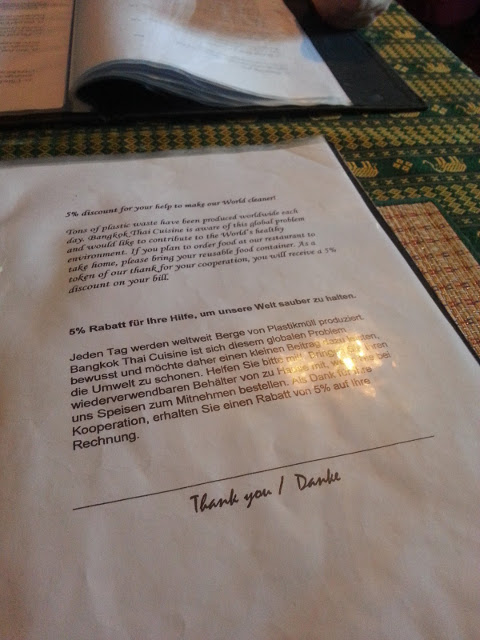 5% discount for your help to make our World cleaner!
Tons of plastic waste have been produced worldwide each
day. Bangkok Thai Cuisine is aware of this global problem
and would like to contribute to the World's healthy
environment. If you plan to order food at our restaurant to
take home, please bring your reusable food container. As a
token of our thank for your cooperation, you will receive a 5%
discount on your bill.
5% Rabatt für Ihre Hilfe, um unsere Welt sauber zu halten.
Jeden Tag werden weltweit Berge von Plastikmüll produziert.
Bangkok Thai Cuisine ist sich diesem globalen Problem
bewusst und möchte daher einen kleinen Beitrag
die Umwelt zu schonen. Helfen Sie bitte
wiederverwendbaren Behälter von zu Hause mit, bei
uns Speisen zum Mitnehmen bestellen. Als Dank
Kooperation, erhalten Sie einen Rabatt von 5% auf Ihre
Rechnung.
Thank you / Danke